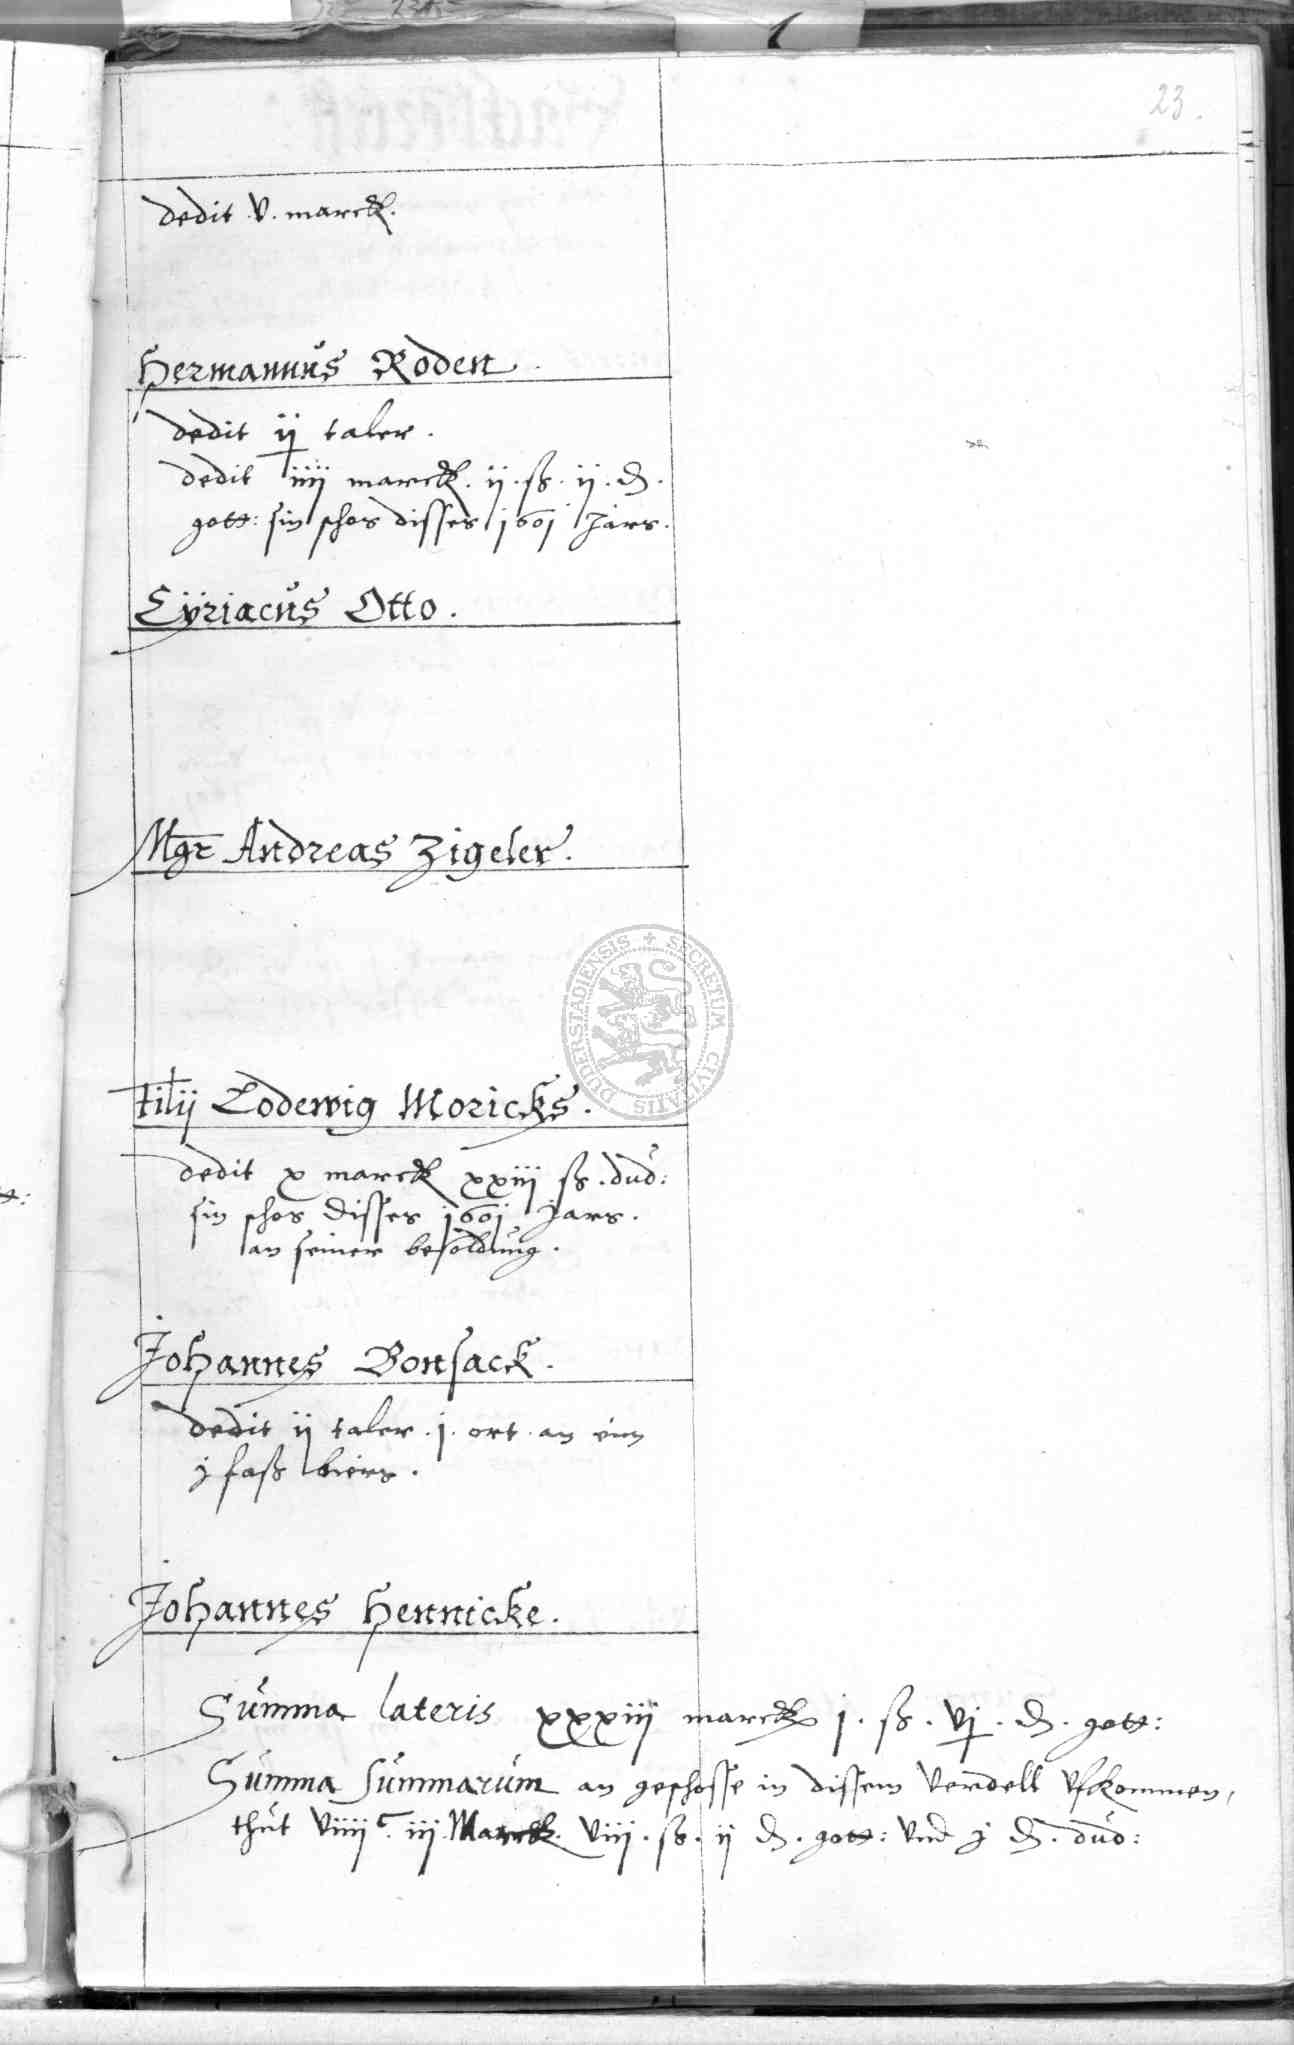 23.
dedit v. marck.
Hermannus Roden.
dedit ij taler.
dedit iiij marck. ij. ß. ij. d.
gott: sin schos disses 1601 Jars.
Cÿriacus Otto.
Mgr Andreas Zigeler.
filij Lodewig Moricks.
dedit x marck xxiij ß. dud:
sin schos disses 1601 Jars.
an seiner besoldung.
Johannes Bonsack.
dedit ij taler. j. ort. an einem
j faß biers.
Johannes Hennicke.
Summa lateris xxxiij marck j. ß. vj. d. gott:
Summa summarum an geschosse in dissem verdell vfkommen,
thut viiij c. iij. Marck. viij. ß. ij d. gott: vnd j d. dud:
SECRETUM CIVITATIS DUDERSTADIENSIS